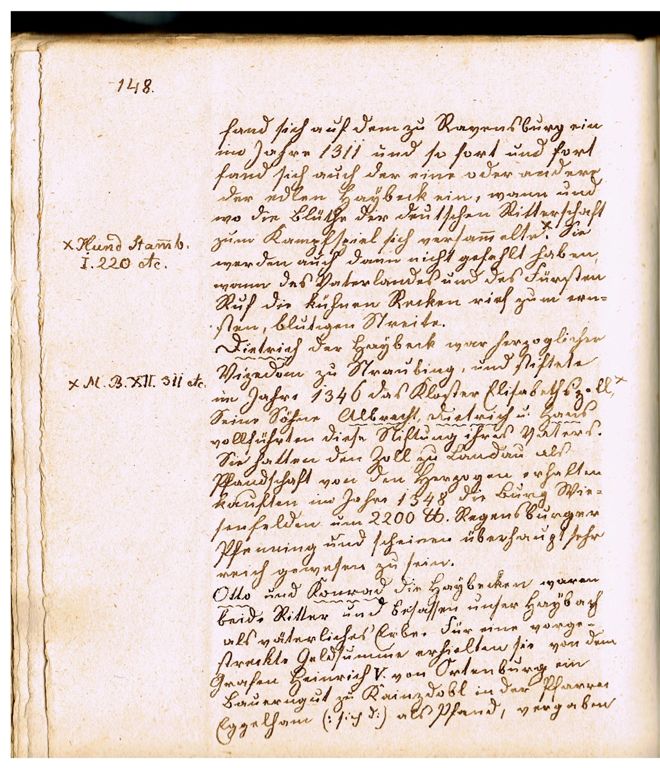 148.
fand sich auf dem zu Ravensburg ein
im Jahre 1311 und so fort und fort
fand sich auch der eine oder andere
der edlen Haÿbeck ein, wann und
wo die Blüthe der deutschen Ritterschaft
zum Kampfspiel sich versam̅elte.× Sie
× Hund Stamb.
I. 220 etc.
werden auch dann nicht gefehlt haben,
wann des Vaterlandes und des Fürsten
Ruf die kühnen Recken rief zum ern-
sten, blutigen Streite.
Dietrich der Haÿbeck war herzoglicher
Vizedom zu Straubing, und stiftete
× M. B. XII. 311 etc.
im Jahre 1346 das Kloster Elisabethszell,×
Seine Söhne Albrecht, Dietrich u. Hans
vollführten diese Stiftung ihres Vaters.
Sie hatten den Zoll zu Landau als
Pfandschaft von den Herzogen erhalten
kauften im Jahre 1348 die Burg Wie-
senfelden um 2200 ℔. Regensburger
Pfenning und scheinen überhaupt sehr
reich gewesen zu sein.
Otto und Konrad die Haÿbecken waren
beide Ritter und besassen unser Haÿbach
als väterliches Erbe. Für eine vorge-
streckte Geldsumme erhielten sie von dem
Grafen Heinrich V. von Ortenburg ein
Bauerngut zu Rainzdobl in der Pfarrei
Eggelham (: sich d:) als Pfand, vergaben